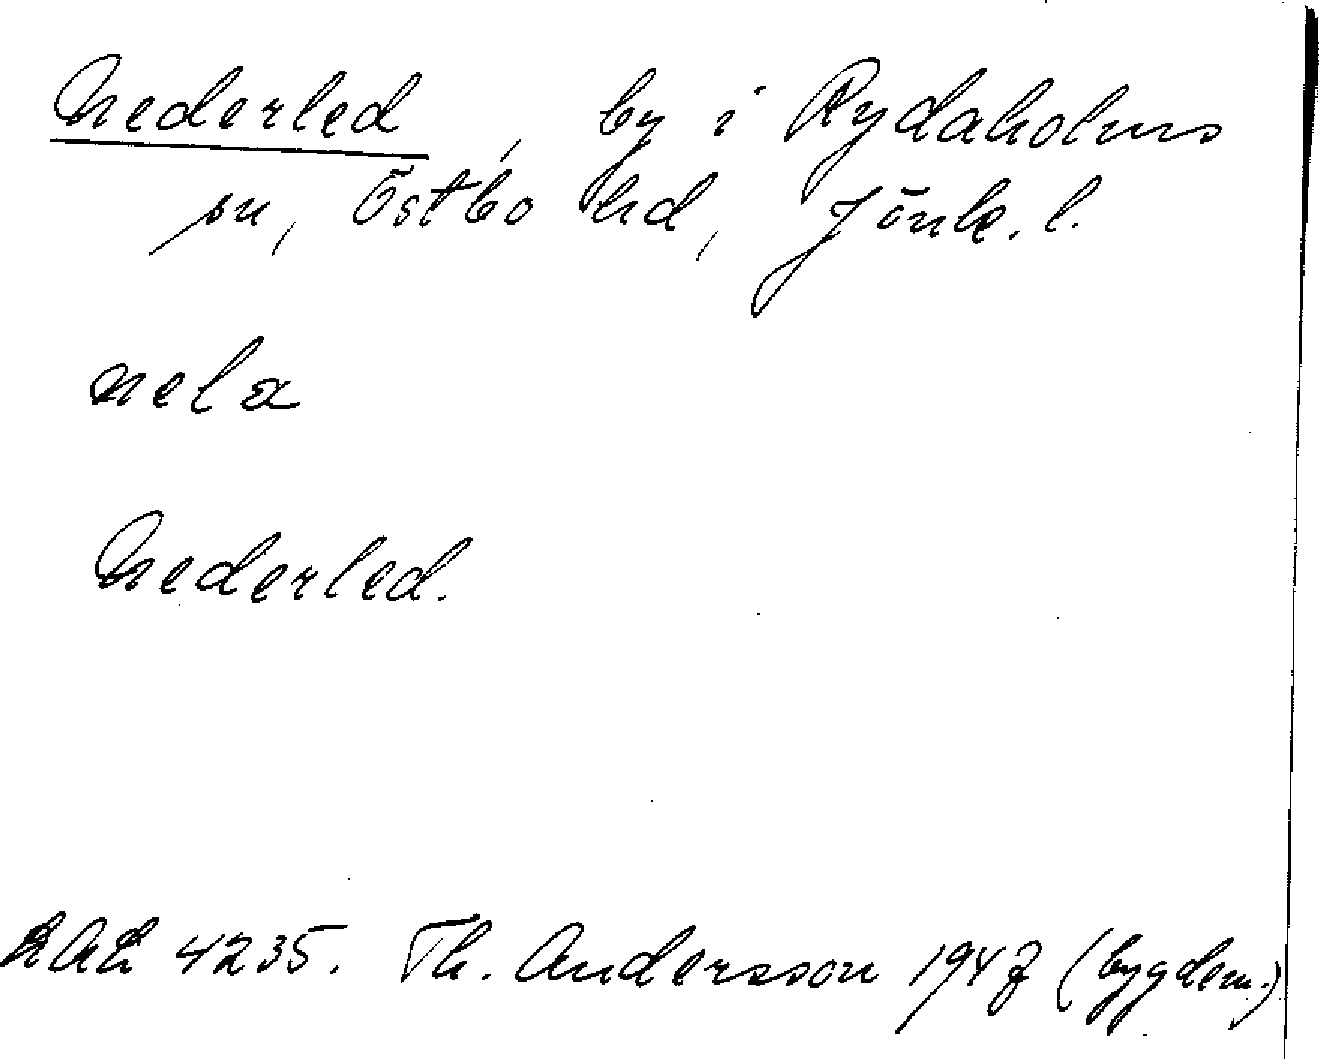 Nederled, by i Rydaholms
sn, Östbo hd, Jönk. l.
nela
Nederled.
4235. Th. Andersson 1947 (bygdem.)